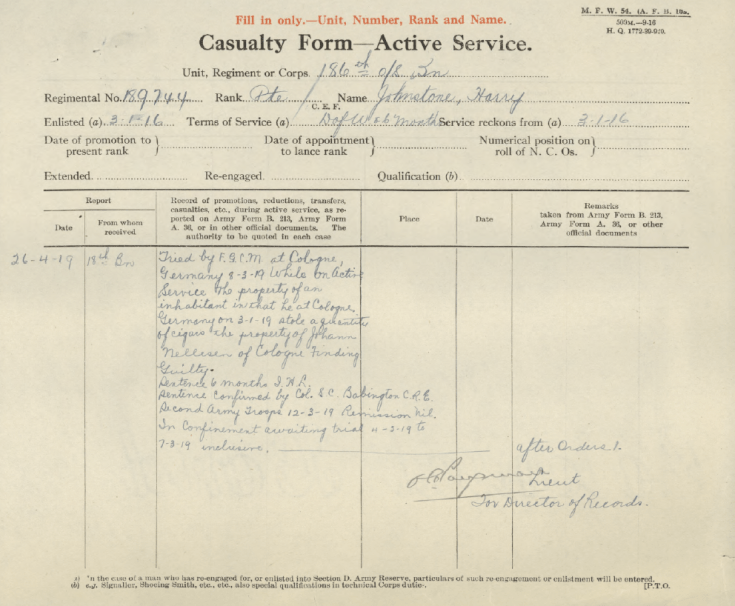 M. F. W. 54. (A. F. B. 103.
Fill in only.—Unit, Number, Rank and Name.
500M.—9-16
H. Q. 1772-39-920.
Casualty Form—Active Service.
Unit, Regiment or Corps 186th O/S Bn
Regimental No. 189744 Rank Pte C.E.F. Name Johnstone, Harry
Enlisted (a) 3-1-16 Terms of Service (a) D of W & 6 Months Service reckons from (a) 3-1-16
Date of promotion to present rank } Date of appointment to lance rank } Numerical position on roll of N. C. Os. }
Extended Re-engaged Qualification (b)
Report
Date
From whom received
Record of promotions, reductions, transfers,
casualties, etc., during active service, as re-
ported on Army Form B. 213, Army Form
A. 36, or in other official documents. The
authority to be quoted in each case
Place
Date
Remarks
taken from Army Form B. 213,
Army Form A. 36, or other
official documents
26-4-19 18th Bn Tried by F.G.C.M. at Cologne,
Germany 8-3-19 While on Active
Service the property of an
inhabitant in that he at Cologne.
Germany on 3-1-19 stole a quantity
of cigars the property of Johann
Nellisen of Cologne Finding
Guilty.
Sentence 6 months I.H.L.
Sentence Confirmed by Col. S.C. Babington C.R.E.
Second Army Troops 12-3-19 Remission Nil.
In Confinement awaiting trial
7-3-19 inclusive.
after Orders 1.
Lieut
For Director of Records.
a) In the case of a man who has re-engaged for, or enlisted into Section D. Army Reserve, particulars of such re-engagement or enlistment will be entered.
(b) e.g. Signaller, Shoeing Smith, etc., etc., also special qualifications in technical Corps duties.
[P.T.O.